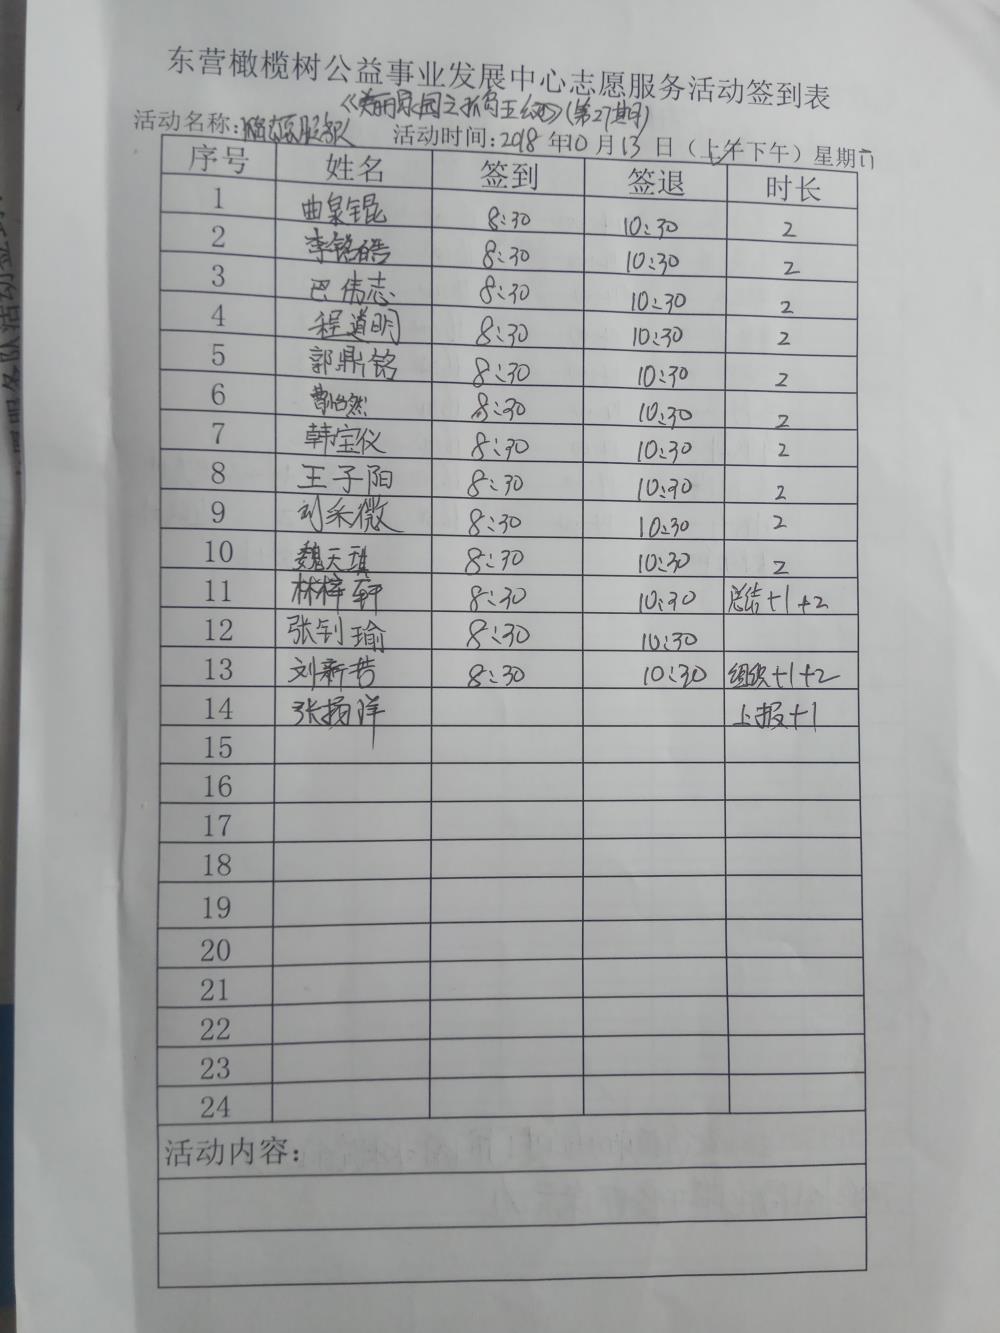 东营橄榄树公益事业发展中心志愿服务活动签到表
(第27期)
活动名称: 活动时间:2018年10月13日(上午下午)星期六
序号 姓名 签到 签退 时长
1 曲泉锟 8:30 10:30 2
2 李铭皓 8:30 10:30 2
3 巴伟志 8:30 10:30 2
4 程道明 8:30 10:30 2
5 郭鼎铭 8:30 10:30 2
6 曹怡然 8:30 10:30 2
7 韩宝仪 8:30 10:30 2
8 王子阳 8:30 10:30 2
9 刘采微 8:30 10:30 2
10 魏天琪 8:30 10:30 2
11 林梓轩 8:30 10:30 总结+1+2
12 张钊瑜 8:30 10:30
13 刘新哲 8:30 10:30 组织+1+2
14 张扬洋 上报+1
15
16
17
18
19
20
21
22
23
24
活动内容: